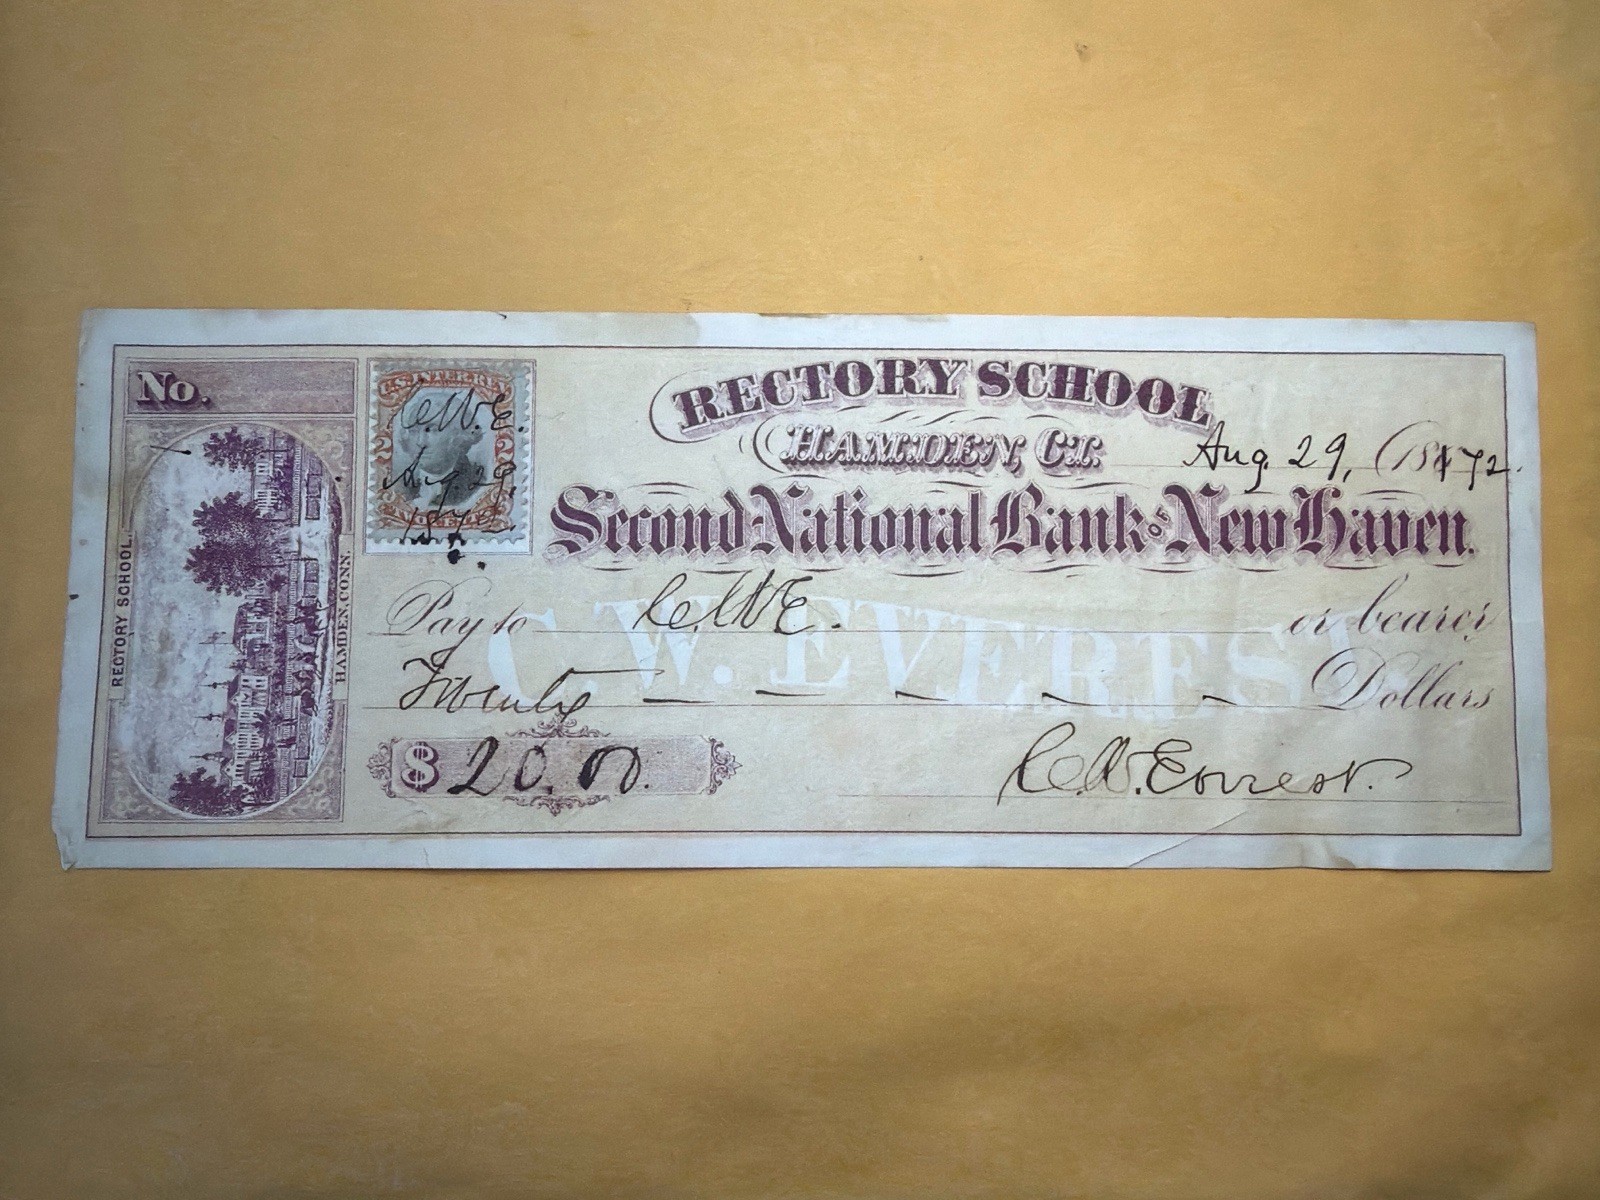 No.
RECTORY SCHOOL.
HAMDEN, CONN.
U.S. INTER. REV.
2 2
C.W.E.
Aug. 29,
1872.
RECTORY SCHOOL,
HAMDEN, CT. Aug. 29, 1872.
Second National Bank OF New Haven.
Pay to C.W.E. or bearer
C. W. EVEREST
Twenty Dollars
$ 20.00.
C.W. Everest.